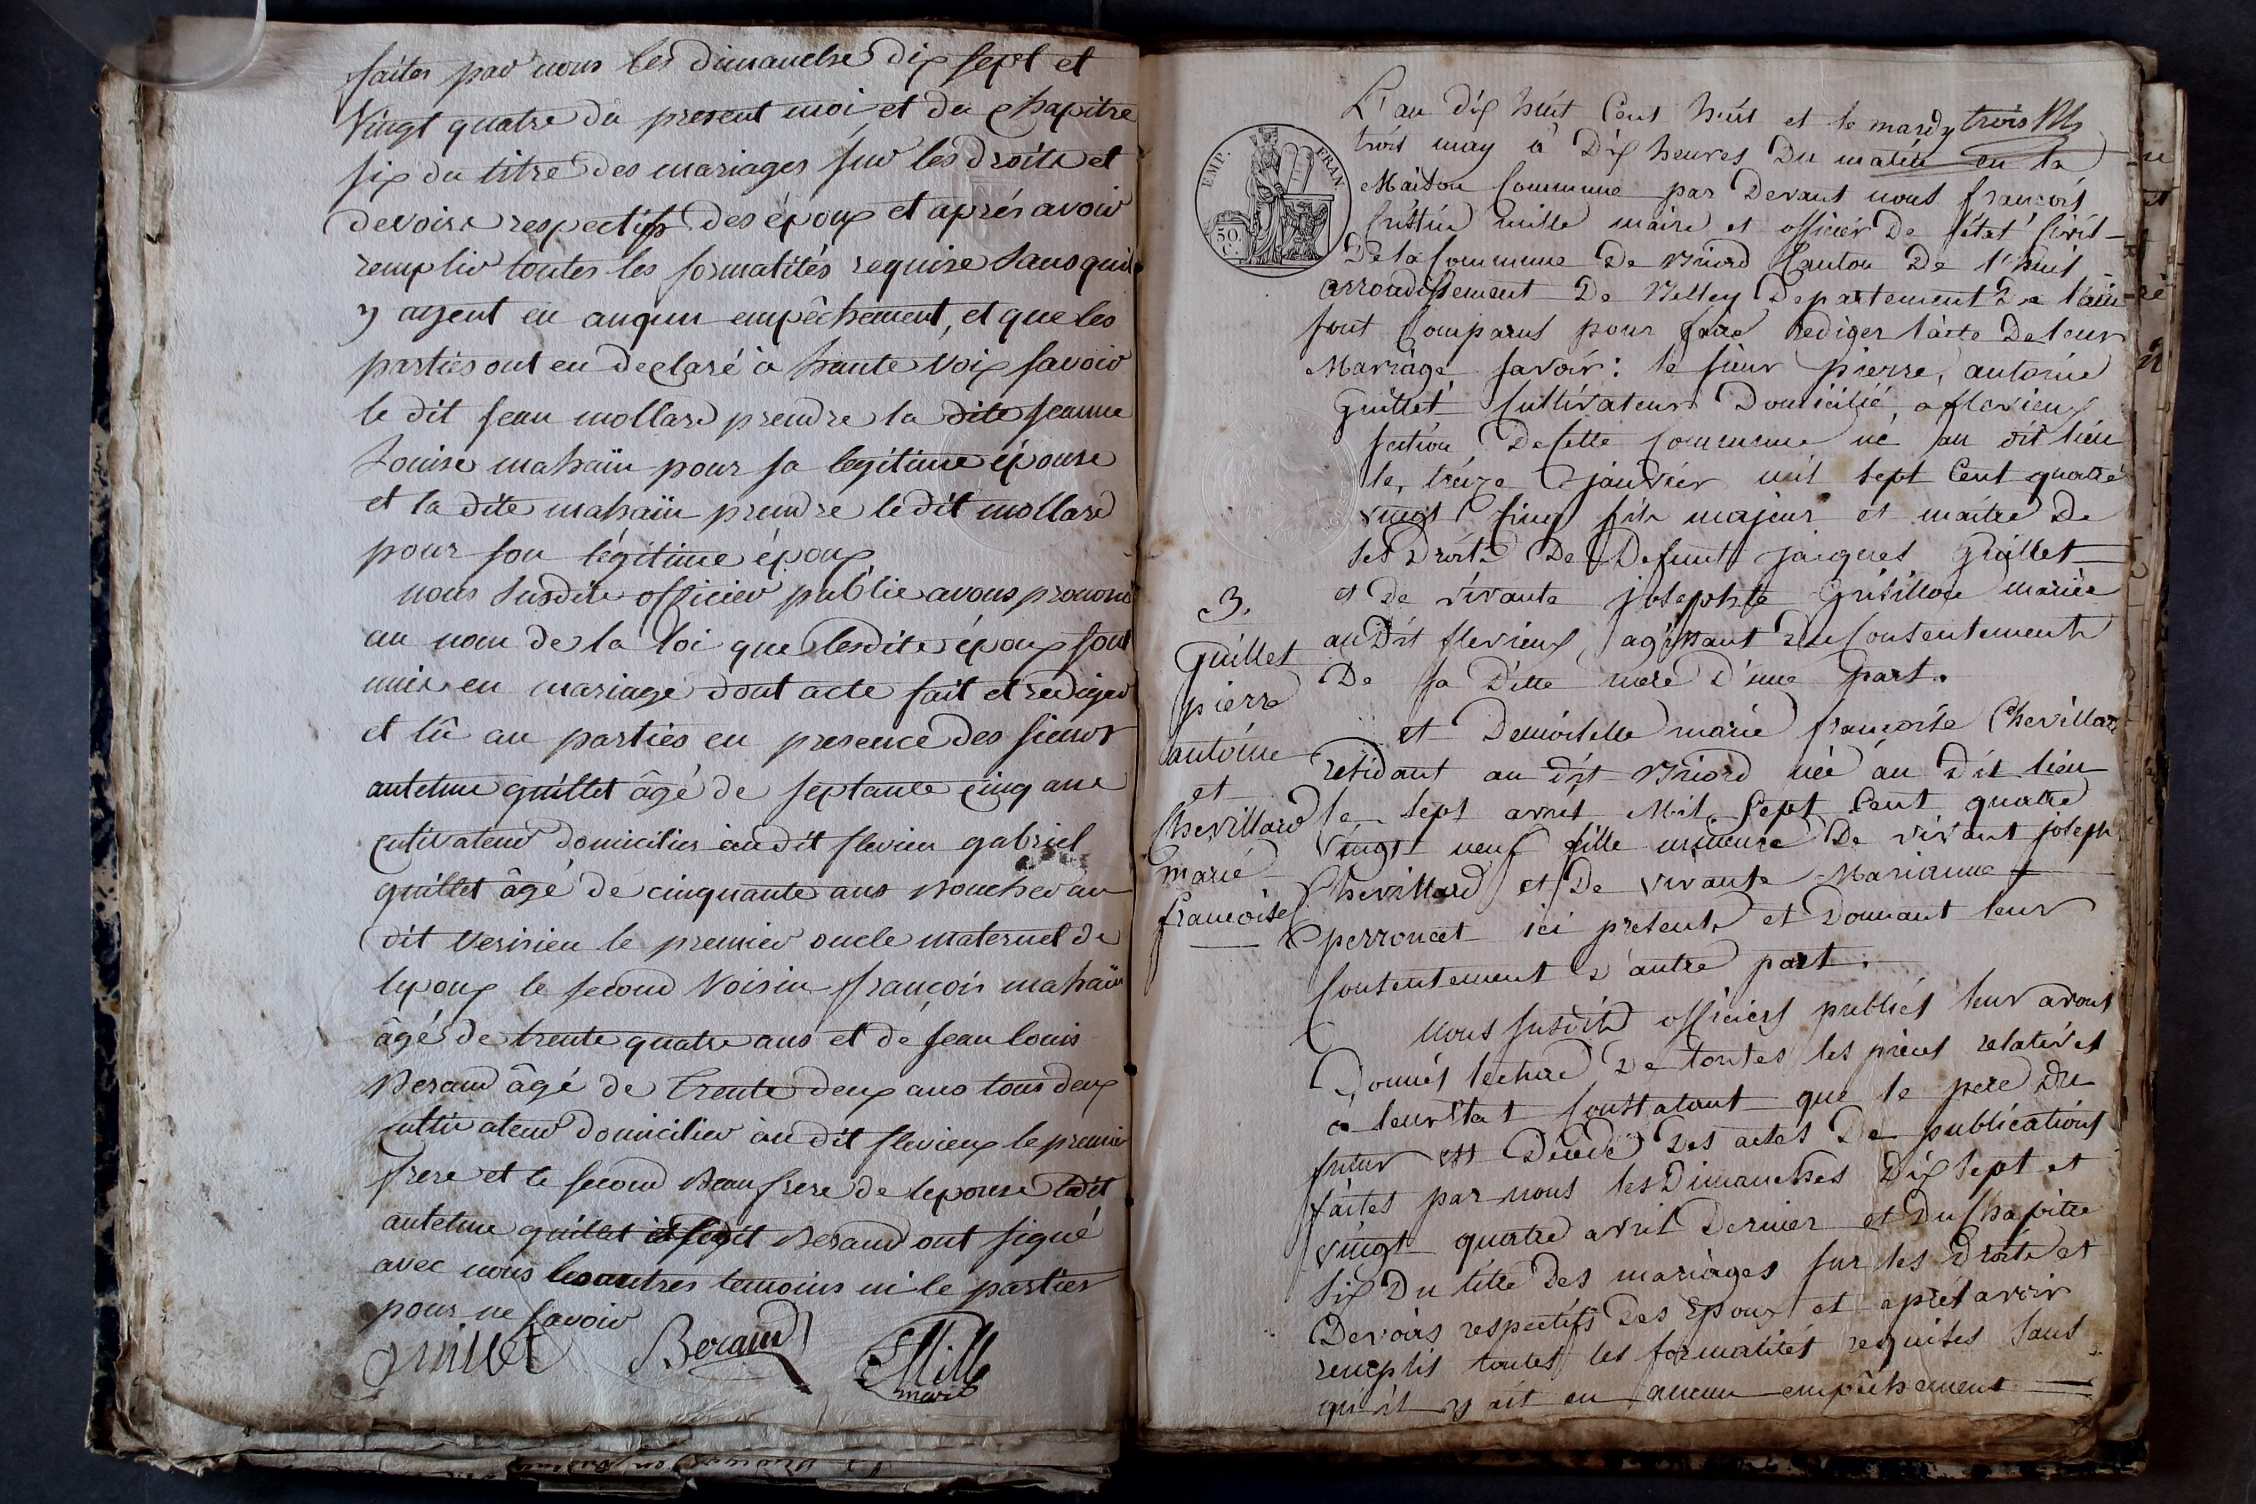 faites par nous les dimanche dix sept et
Vingt quatre du present moi et du Chapitre
six du titre des mariages sur les droits et
devoirs respectifs des époux et aprés avoir
remplir toutes les formalités requise sans quil
y ayent eu auqun empêchement, et que les
parties ont eu declaré à haute voix savoir
le dit jean mollard prendre la dite jeanne
Louise mahaïn pour sa legitime épouse
et la dite mahaïn prendre le dit mollard
pour son légitime époux
nous Susdits officier public avons prononcé
au nom de la loi que lesdits époux sont
unis en mariage dont acte fait et rediger
et lû au parties en presence des sieurs
antelme guillet âgé de septante cinq ans
cultivateur domicilier audit flevieu gabriel
guillet âgé de cinquante ans Boucher au
dit Versieu le premier oncle maternel de
lepoux le second Voisin françois mahaïn
âgé de trente quatre ans et de jean louis
Beraud âgé de trente deux ans tous deux
cultivateur domicilier audit flevieux le premier
frere et le second Beau frere de lepouse ledit
antelme guillet et ledit Beraud ont signé
avec nous les autres temoins ni le parties
pour ne savoir
guillet Beraud Mille
maire
EMP. FRAN.
50. C.
3.
Guillet
pierre
antoine
et
Chevillard
marie
françoise
L'an dix huit Cent huit et le mardy trois
trois may à Dix heures Du matin en la
Maison Commune par Devant nous françois
Cristin mille maire et officier De l'état Civil
De la Commune De Briord Canton De l'huis
arrondissement De Belley Departement De l'ain
sont Comparus pour faire rediger l'acte De leur
Mariage savoir: le sieur pierre, antoine
Guillet Cultivateur Domicilié, a flevieux
section De Cette Commune né au dit lieu
le, treize janvier mil sept Cent quatre
vingt Cinq fils majeur et maitre De
ses Droits De Defunt jacques Guillet
et De vivante josephte Grisillon mariée
au Dit flevieux agissant Du Consentement
De sa Ditte mere D'une part.
et Demoiselle marie françoise Chevillard
residant au dit Briord née au Dit lieu
le sept avril Mil Sept Cent quatre
Vingt neuf fille mineure De vivant joseph
Chevillard et De vivante Marianne
perroncet ici presents et Donnant leur
Consentement D'autre part.
Nous susdits officiers publics leur avons
Donnés lecture De toutes les pieces relatives
à leur Etat Constatant que le pere Du
futur est Décedé Des actes De publications
faites par nous les Dimanches Dix sept et
vingt quatre avril Dernier et Du Chapitre
Six Du titre Des mariages sur les Droits et
Devoirs respectifs Des Epoux et aprés avoir
remplis toutes les formalités requises Sans
qu'il y ait eu aucun empêchement